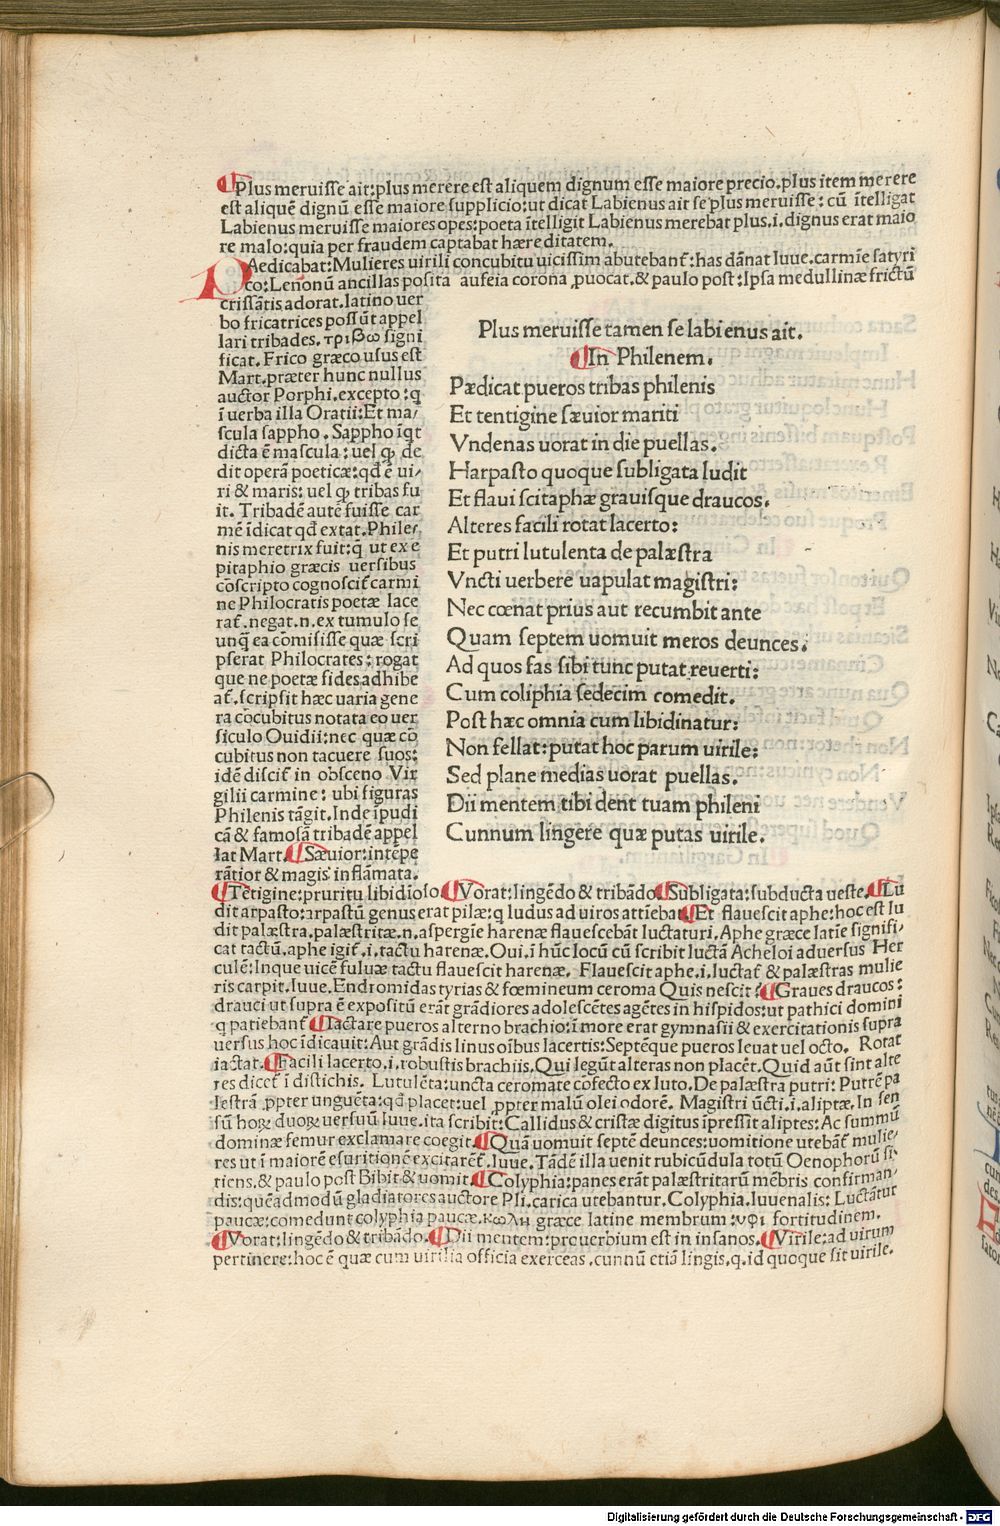 Plus meruisse ait:plus merere est aliquem dignum esse maiore precio.plus item merere
est aliquē dignū esse maiore supplicio:ut dicat Labienus ait se plus meruisse: cū ītelligat
Labienus meruisse maiores opes:poeta ītelligit Labienus merebat plus.i.dignus erat maio
re malo:quia per fraudem captabat hæreditatem.
PAedicabat:Mulieres uirili concubitu uicissim abutebant̄:has dānat Iuue.carmīe satyri
co:Lenonū ancillas posita aufeia corona ꝓuocat.& paulo post:Ipsa medullinæ frictū
crissātis adorat.latino uer
bo fricatrices possūt appel
lari tribades. τριβω signi
ficat.Frico græco usus est
Mart.præter hunc nullus
auctor Porphi.excepto:q̄
ī uerba illa Oratii:Et ma/
scula sappho.Sappho īqt
dicta ē mascula:uel ꝙ de
dit operā poeticæ:qđ ē ui/
ri & maris:uel ꝙ tribas fu
it. Tribadē autē fuisse car
mē īdicat qđ extat.Phile/
nis meretrix fuit:q̄ ut ex e
pitaphio græcis uersibus
cōscripto cognoscit̄ carmi
ne Philocratis poetæ lace
rat̄.negat.n.ex tumulo se
unq̄ ea cōmisisse quæ scri
pserat Philocrates: rogat
que ne poetæ fides adhibe
at̄.scripsit hæc uaria gene
ra cōcubitus notata eo uer
siculo Ouidii:nec quæ cō
cubitus non tacuere suos:
idē discit̄ in obsceno Vir
gilii carmine: ubi figuras
Philenis tāgit.Inde īpudi
cā & famosā tribadē appel
lat Mart. Sæuior:intēpe
rātior & magis inflāmata.
Plus meruisse tamen se labienus ait.
In Philenem.
Pædicat pueros tribas philenis
Et tentigine sæuior mariti
Vndenas uorat in die puellas.
Harpasto quoque subligata ludit
Et flaui scitaphæ grauisque draucos.
Alteres facili rotat lacerto:
Et putri lutulenta de palæstra
Vncti uerbere uapulat magistri:
Nec cœnat prius aut recumbit ante
Quam septem uomuit meros deunces.
Ad quos fas sibi tunc putat reuerti:
Cum coliphia sedecim comedit.
Post hæc omnia cum libidinatur:
Non fellat:putat hoc parum uirile:
Sed plane medias uorat puellas.
Dii mentem tibi dent tuam phileni
Cunnum lingere quæ putas uirile.
Tētigine:pruritu libidioso. Vorat:lingēdo & tribādo. Subligata:subducta ueste. Lu
dit arpasto:arpastū genus erat pilæ:q ludus ad uiros attiēbat Et flauescit aphe:hoc est lu
dit palæstra.palæstritæ.n.aspergīe harenæ flauescebāt luctaturi.Aphe græce latīe signifi/
cat tactū.aphe igit̄.i.tactu harenæ.Oui.ī hūc locū cū scribit luctā Acheloi aduersus Her
culē:Inque uicē fuluæ tactu flauescit harenæ. Flauescit aphe.i.luctat̄ & palæstras mulie
ris carpit.Iuue.Endromidas tyrias & fœmineum ceroma Quis nescit: Graues draucos:
drauci ut supra ē expositū erāt grādiores adolescētes agētes in hispidos:ut pathici domini
q patiebant̄ Iactare pueros alterno brachio:ī more erat gymnasii & exercitationis supra
uersus hoc īdicauit:Aut grādis linus oībus lacertis:Septēque pueros leuat uel octo. Rotat
iactat. Facili lacerto.i.robustis brachiis.Qui legūt alteras non placēt.Quid aūt sint alte
res dicet̄ ī distichis. Lutulēta:uncta ceromate cōfecto ex luto.De palæstra putri:Putrē pa
lestrā ꝓpter unguēta:qđ placet:uel ꝓpter malū olei odorē. Magistri ūcti.i.aliptæ.In sen
sū hoꝝ duoꝝ uersuū Iuue.ita scribit:Callidus & cristæ digitus īpressit aliptes:Ac summū
dominæ femur exclamare coegit. Quā uomuit septē deunces:uomitione utebāt̄ mulie/
res ut ī maiorē esuritionē excitarēt̄.Iuue.Tādē illa uenit rubicūdula totū Oenophorū si/
tiens.& paulo post Bibit & uomit. Colyphia:panes erāt palæstritarū mēbris confirman/
dis:quēadmodū gladiatores auctore Pli.carica utebantur.Colyphia.Iuuenalis: Luctātur
paucæ:comedunt colyphia paucæ.κωλη græce latine membrum:υφι fortitudinem.
Vorat:lingēdo & tribādo. Dii mentem:prouerbium est in insanos. Virile:ad uirum
pertinere:hoc ē quæ cum uirilia officia exerceas.cunnū etiā lingis.q.id quoque sit uirile.
Digitalisierung gefördert durch die Deutsche Forschungsgemeinschaft - DFG